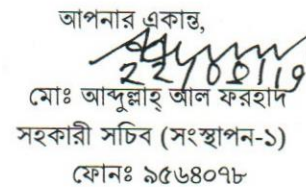 আপনার একান্ত,
মোঃ আব্দুল্লাহ্ আল ফরহাদ
সহকারী সচিব (সংস্থাপন-১)
ফোনঃ ৯৫৬৪০৭৮